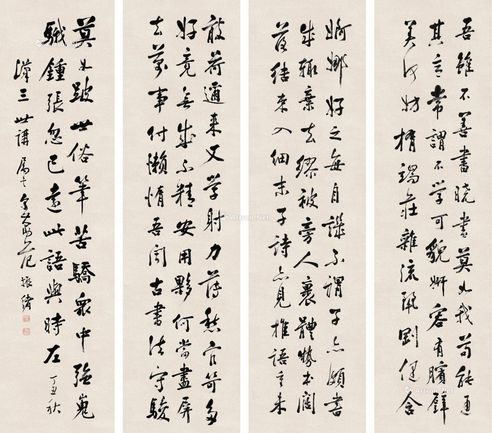 吾雖不善書曉書莫如我苟能通
其意常謂不學可貌妍容有矉璧
美何妨橢端莊雜流麗剛健含
婀娜好之每自譏不謂子亦頗書
成輒棄去繆被旁人裹體勢本闊
落結束入細末子詩亦見推語重未
敢荷邇來又學射力薄愁官笴多
好竟無成不精安用夥何當盡屏
去萬事付懶惰吾聞古書法守駿
莫如跛世俗筆苦驕衆中强嵬
騀鍾張忽已遠此語與時左 丁丑秋
漢三世講屬 范振緒